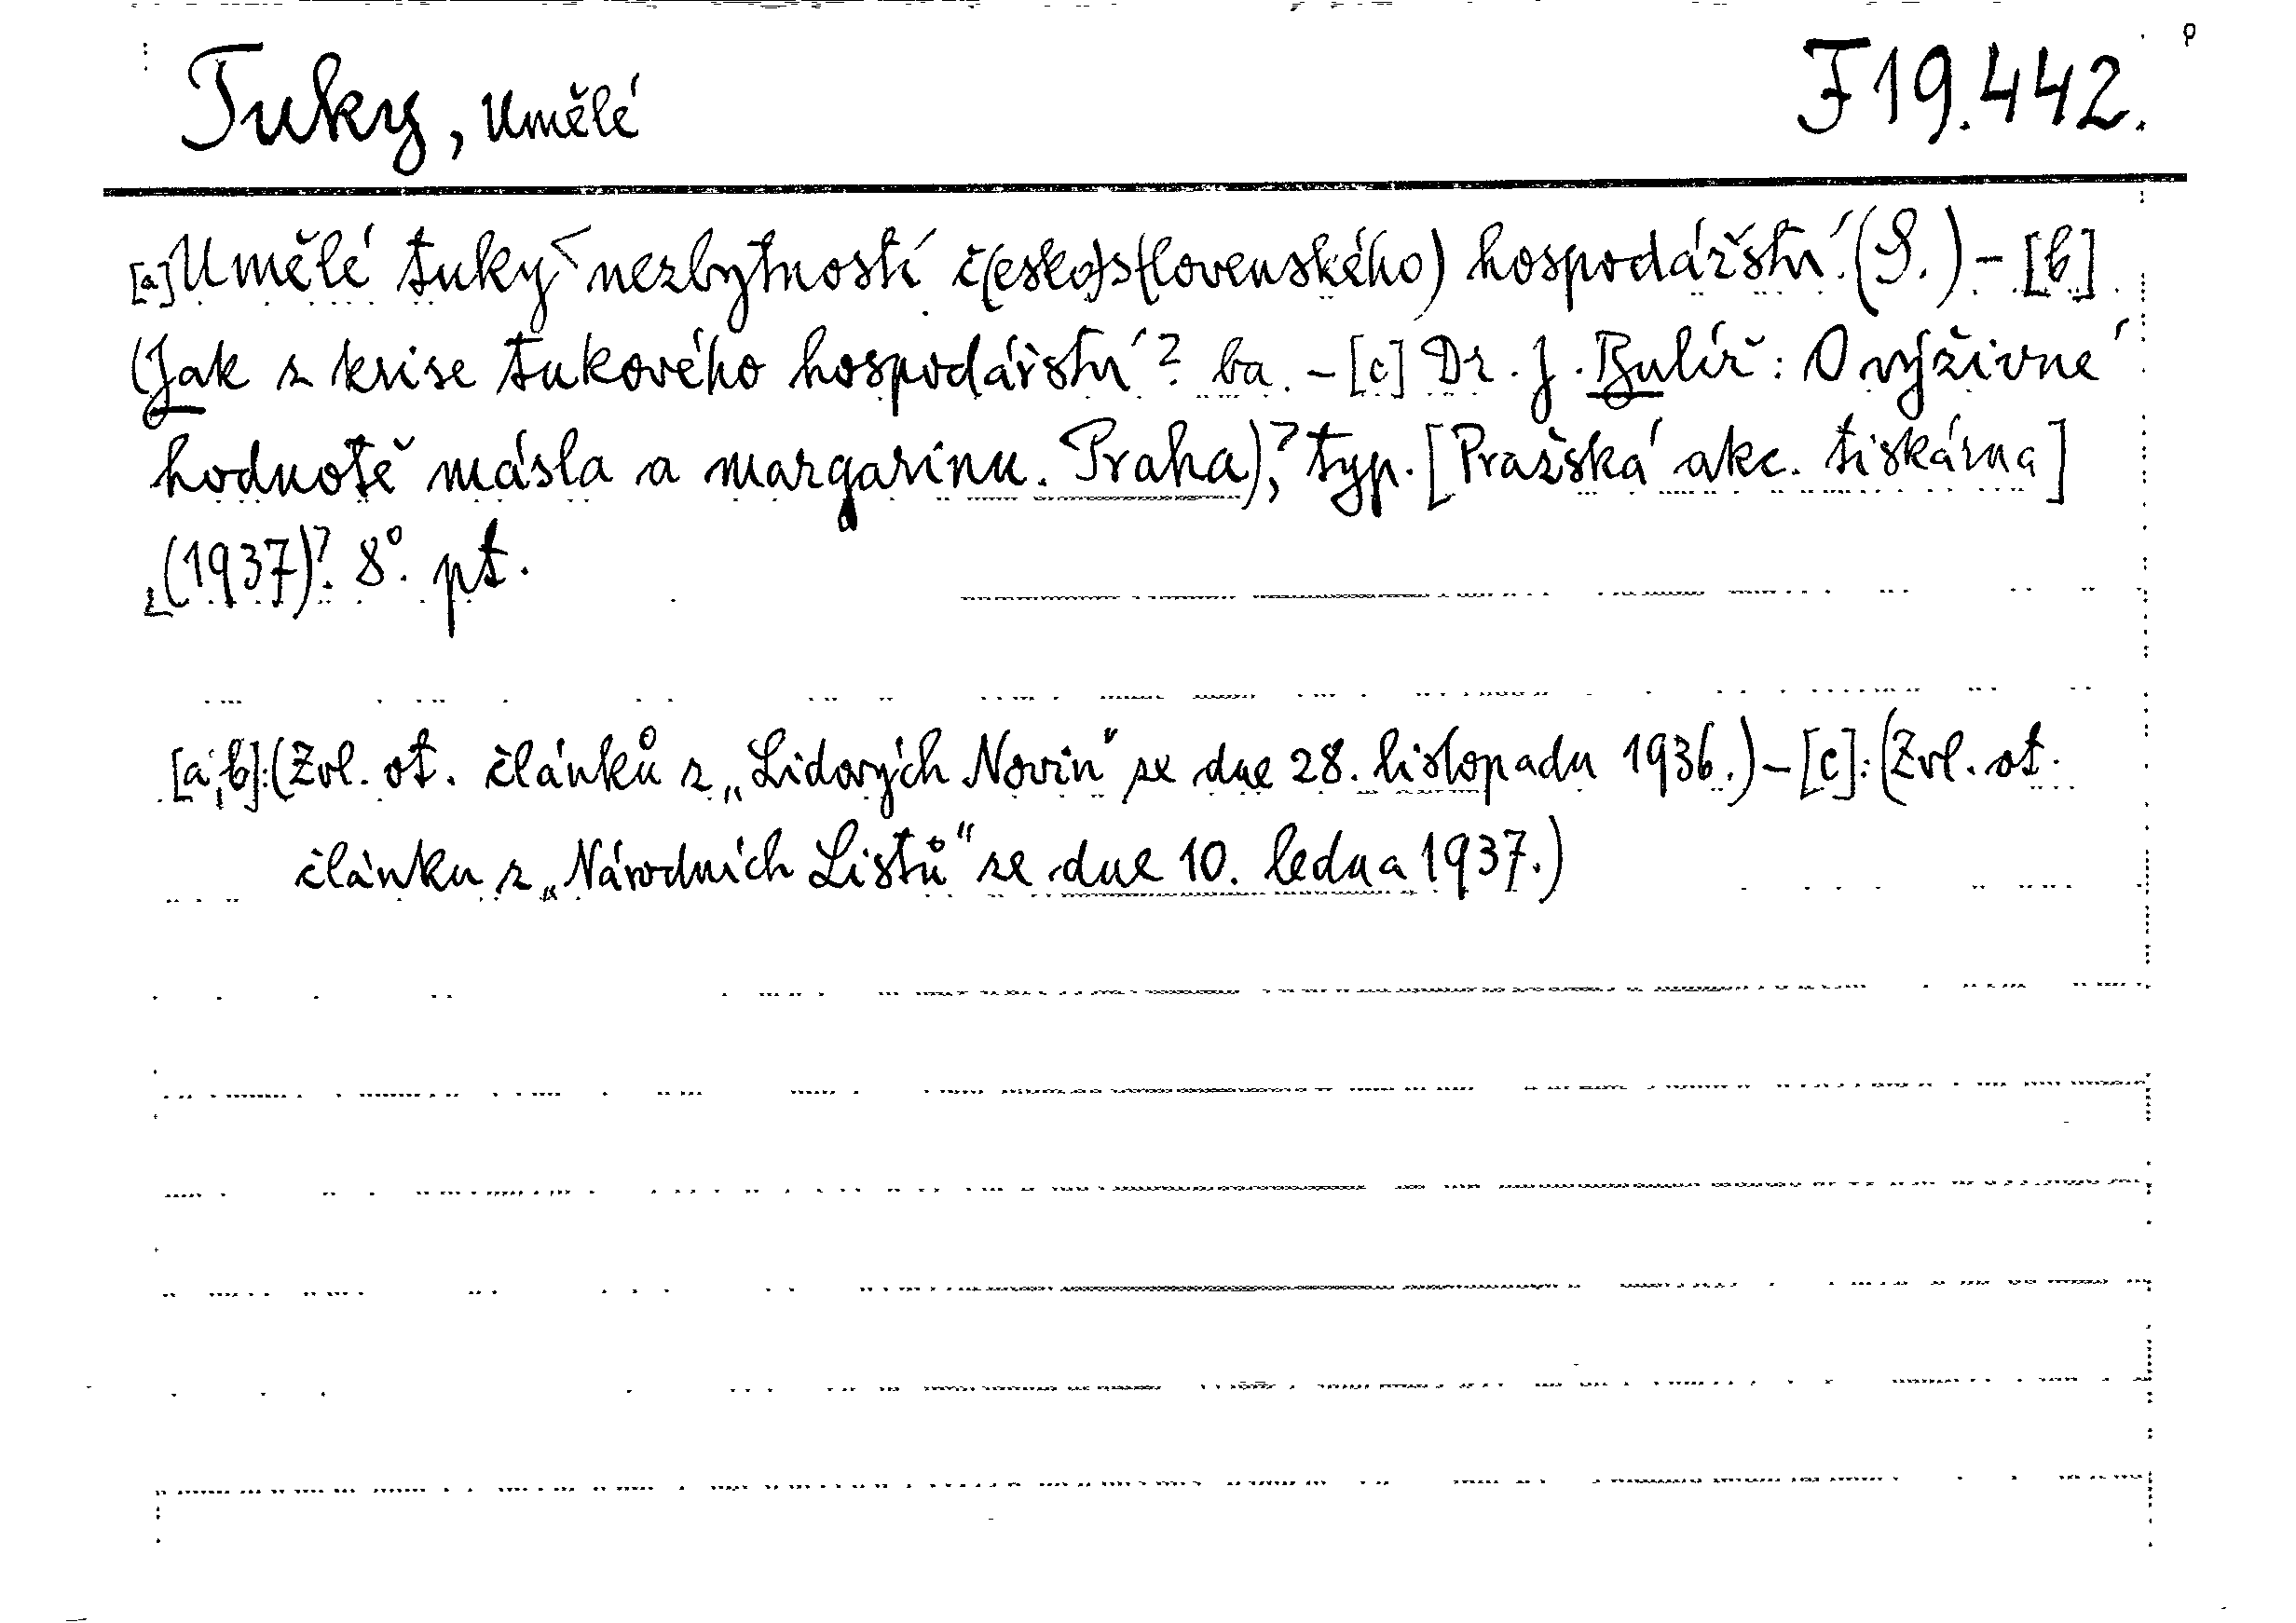 Tuky, Umělé F 19.442.
[a] Umělé tuky < nezbytností č(esko)s(lovenského) hospodářství. (S.) - [b]
(Jak z krise tukového hospodářství? ba. - [c] Dr. J. Bulíř: O výživné
hodnotě másla a margarinu. Praha)?, typ. [Pražská akc. tiskárna]
(1937)?. 8°. pt.
[a,b]: (Zvl. ot. článků z „Lidových Novin" ze dne 28. listopadu 1936.) - [c]: (Zvl. ot.
článku z „Národních Listů" ze dne 10. ledna 1937.)